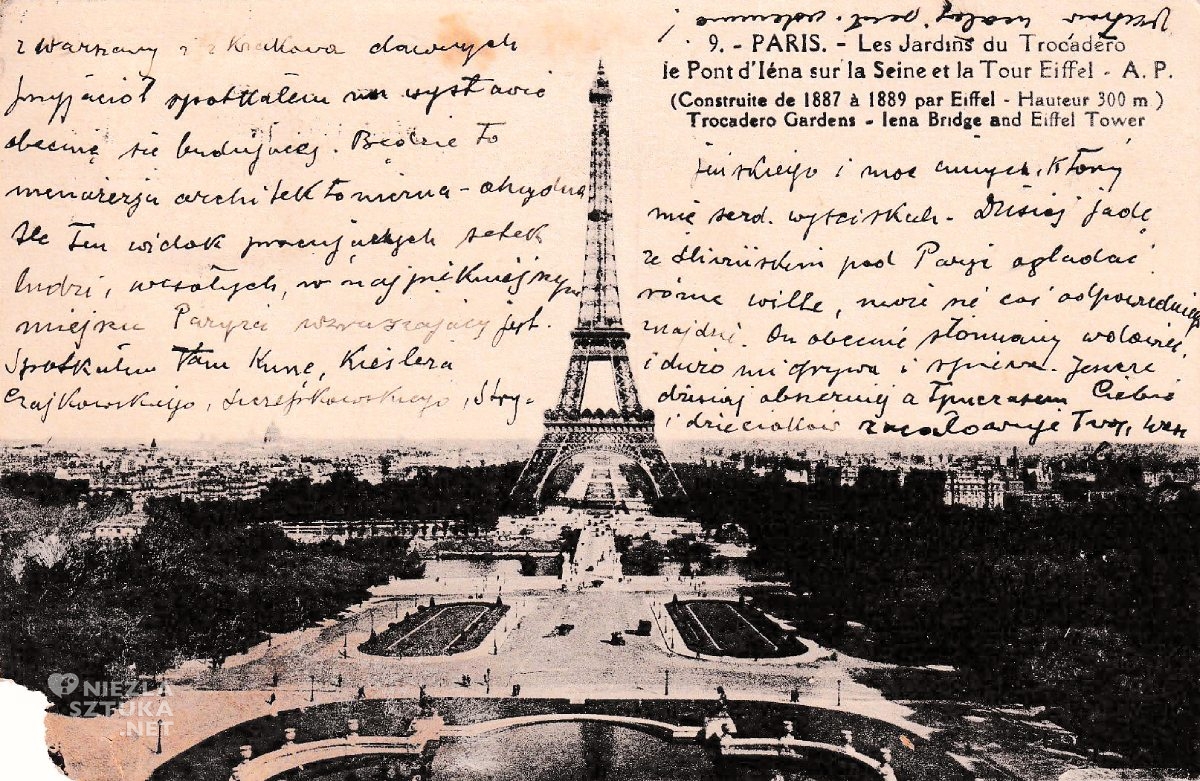 z Warszawy i z Krakowa dawnych
przyjaciół spotkałem na wystawie
obecnie się budującej. Będzie to
menażerja architektoniczna - ohydna
ale ten widok pracujących setek
ludzi, wesołych, w najpiękniejszym
miejscu Paryża wzruszający jest.
Spotkałem tam Kunę, Kieślera
Czajkowskiego, Szczepkowskiego, Stry-
9. - PARIS. - Les Jardins du Trocadéro
le Pont d'Iéna sur la Seine et la Tour Eiffel - A. P.
(Construite de 1887 à 1889 par Eiffel - Hauteur 300 m)
Trocadero Gardens - Iena Bridge and Eiffel Tower
jeńskiego i moc innych, którzy
mię serd. wyściskali. Dzisiaj jadę
ze Śliwińskim pod Paryż oglądać
różne wille, może się coś odpowiedniego
znajdzie. On obecnie słomiany wdowiec,
i dużo mi grywa i śpiewa. Jeszcze
dzisiaj obszerniej a tymczasem Ciebie
i dzieciaków Twój
NIEZŁA
SZTUKA
.NET